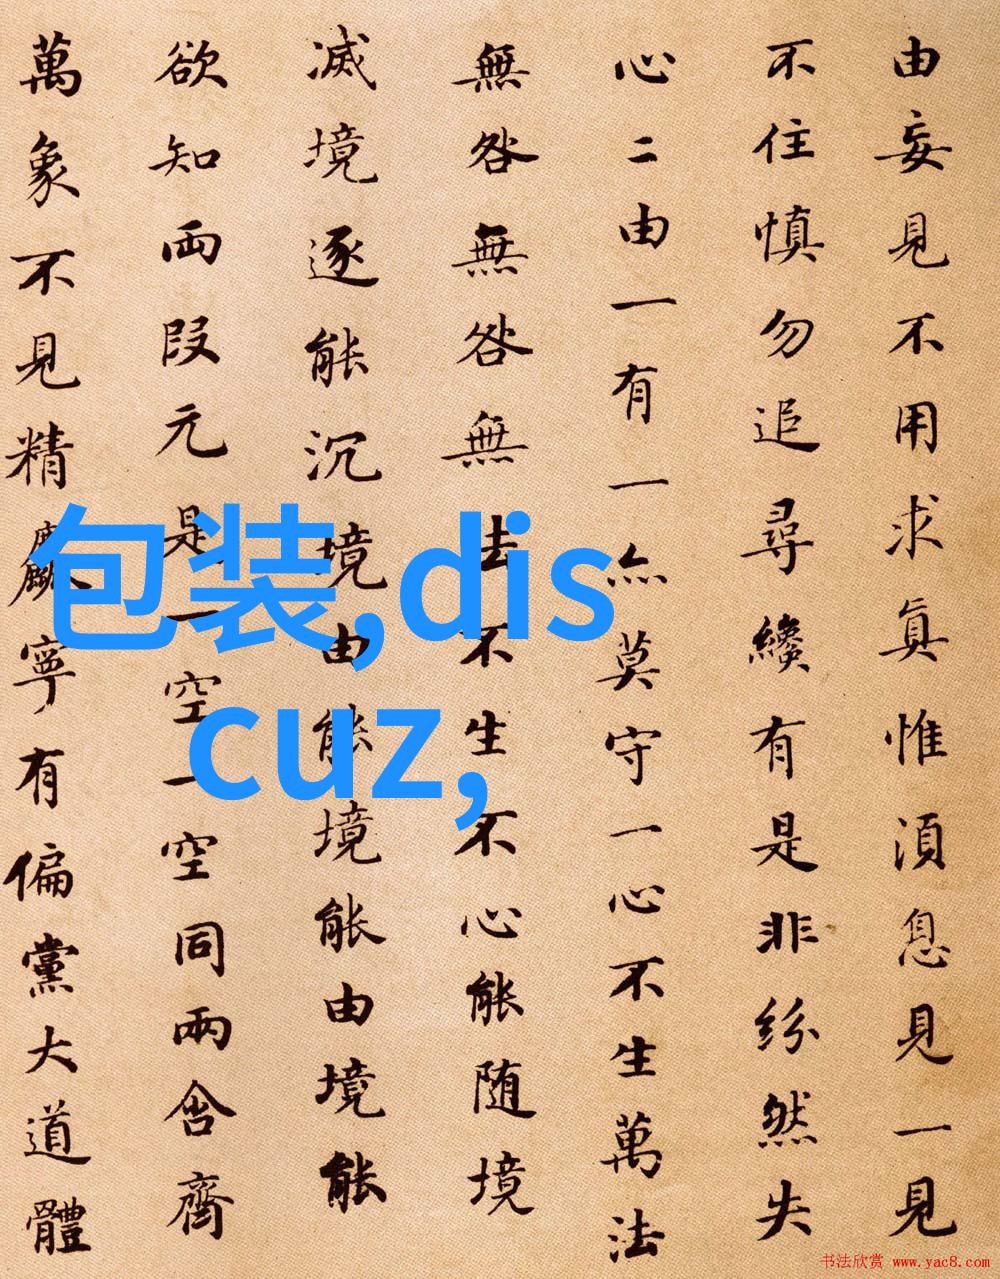 由妄見不用求眞惟湏息見一見
不住慎勿追尋纔有是非紛然失
心二由一有一亦莫守一心不生萬法
無咎無咎無法不生不心能随境
滅境逐能沉境由能境能由境能
欲知兩段元是一空一空同兩含齊
萬象不見精麤寧有偏黨大道體
包装,dis
cuz,
书法欣赏 www.yac8.com